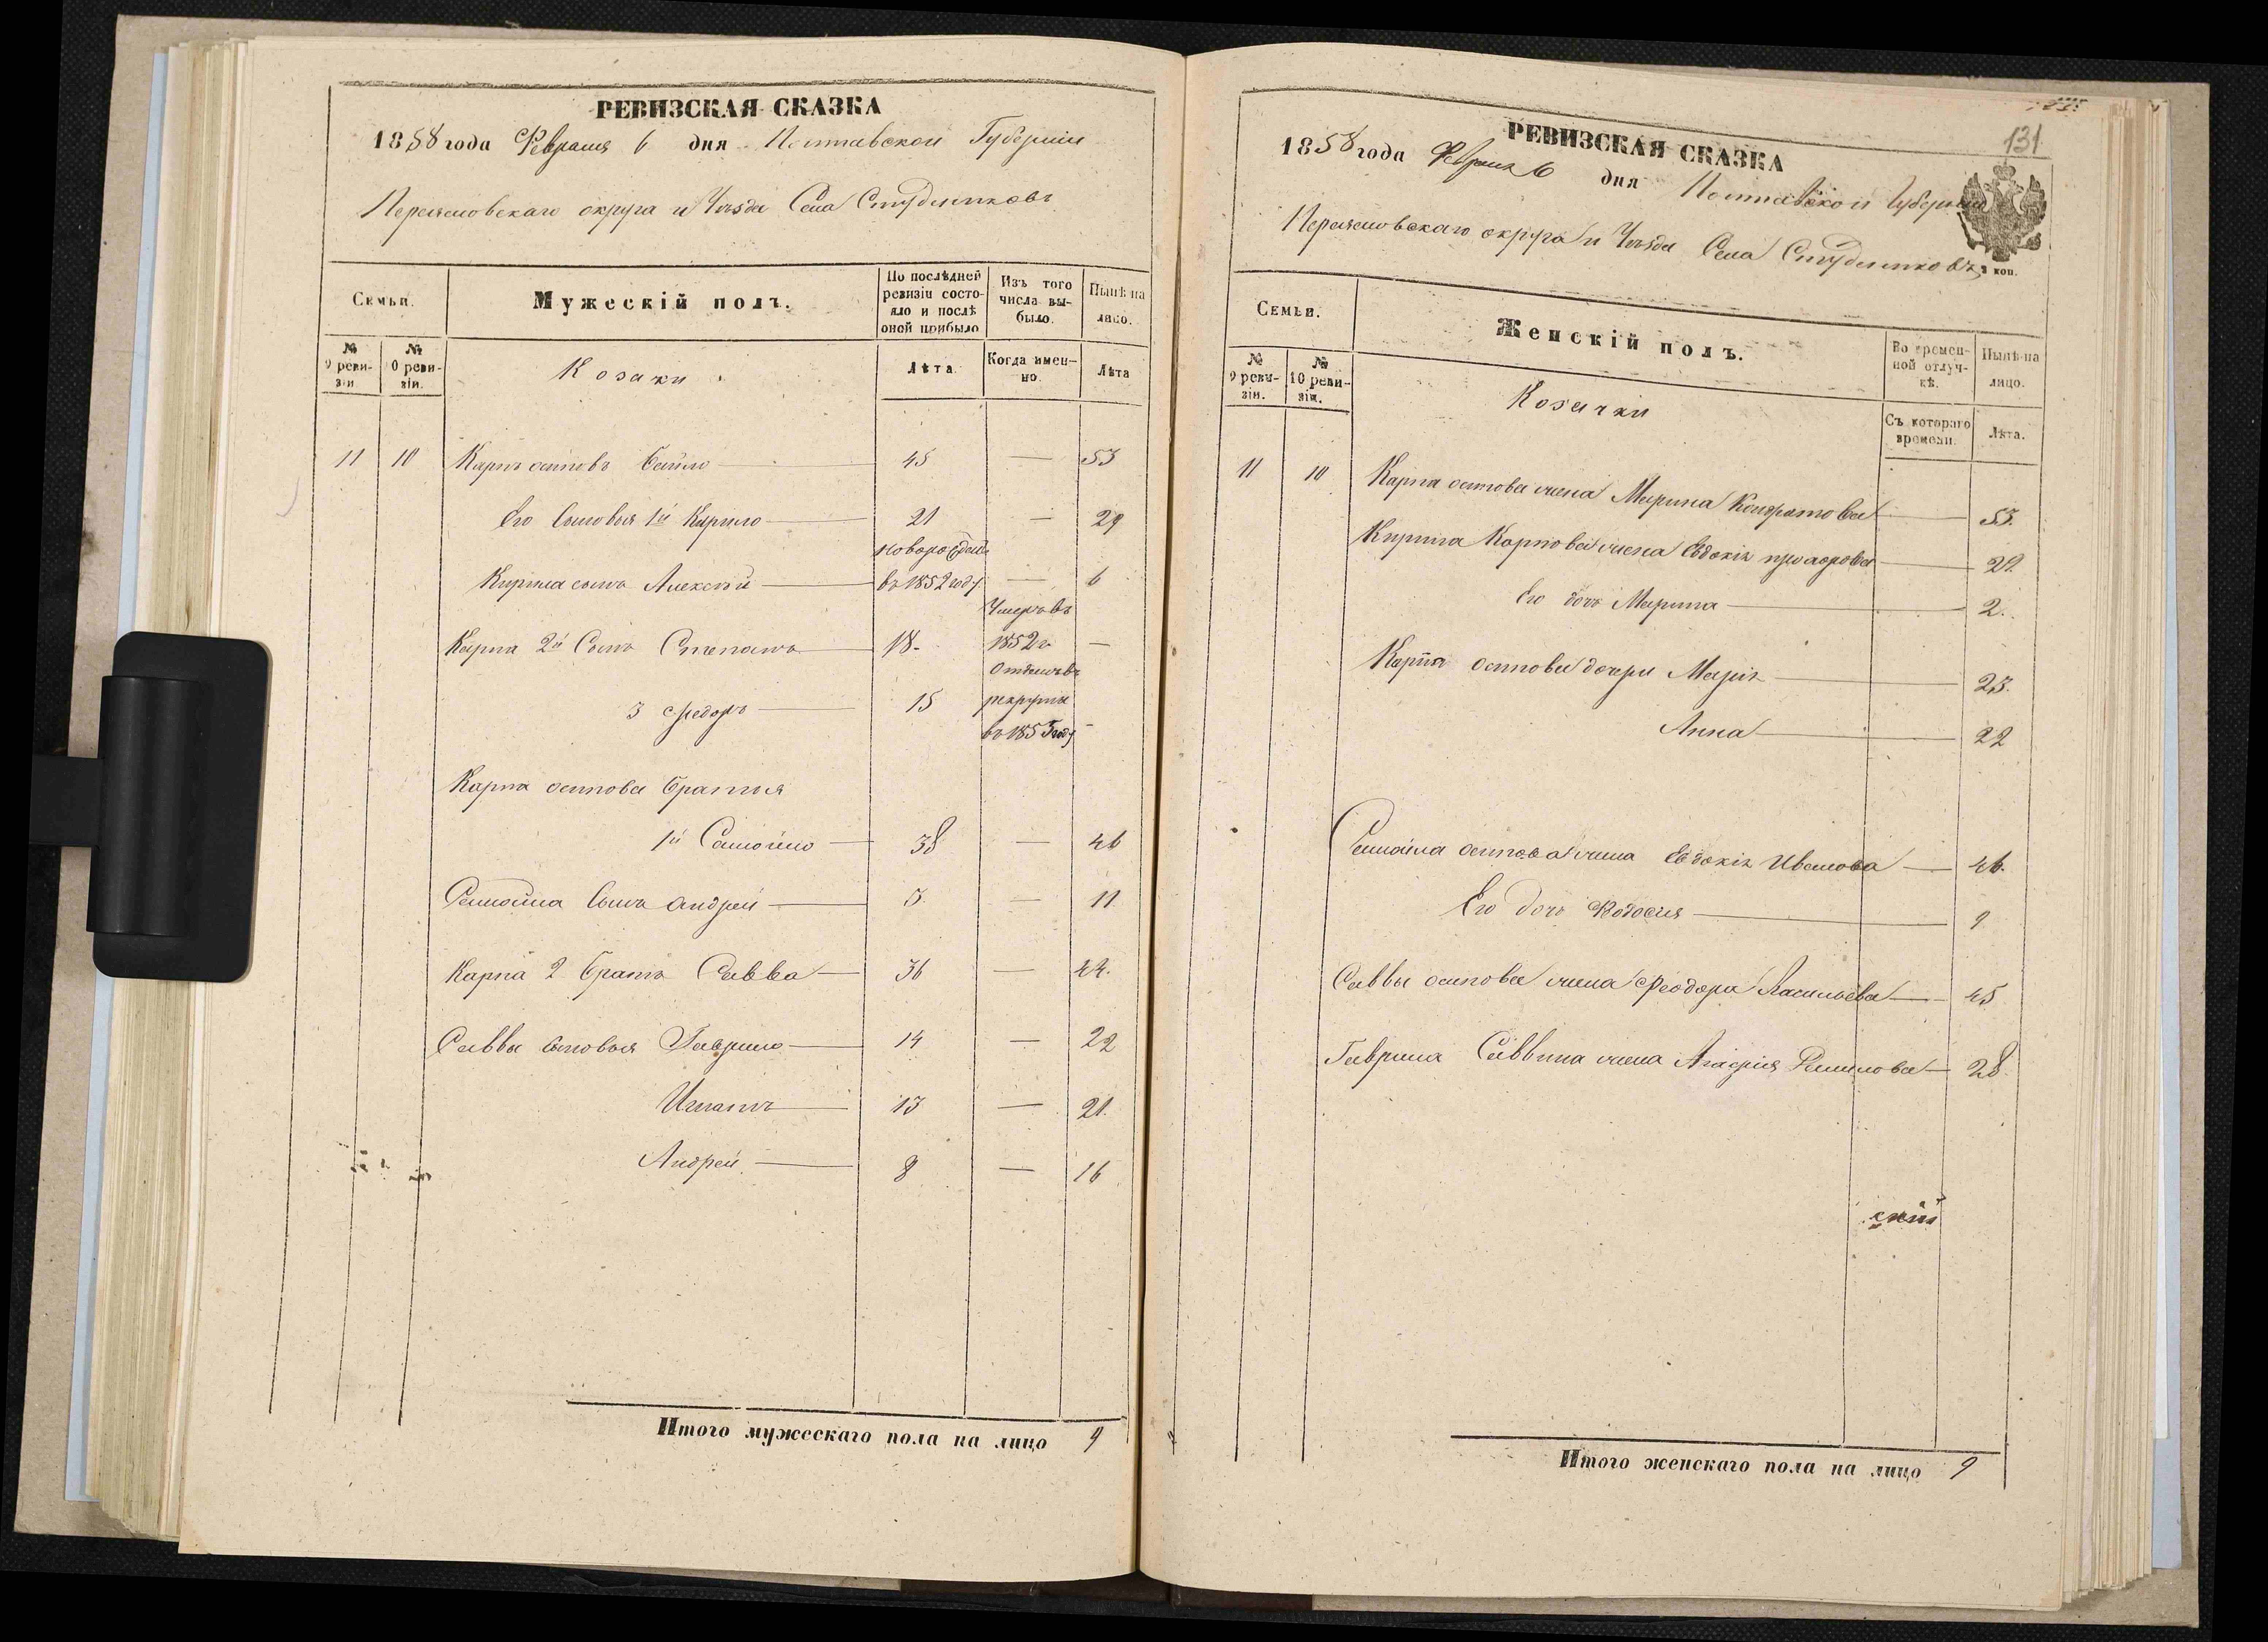 РЕВИЗСКАЯ СКАЗКА
1858 года Февраля 6 дня Полтавской Губерніи
Переяславскаго округа и Уѣзда Села Студениковъ
Семьи.
Мужескій полъ.
По послѣдней ревизіи состояло и послѣ оной прибыло
Изъ того числа выбыло.
Нынѣ на лицо.
№ 9 ревизіи
№ 10 ревизіи.
Козаки
Лѣта.
Когда именно.
Лѣта
11 10 Карпъ осиповъ 45 — 53
Его сыновья 1й Кирило 21 — 29
Кирила сынъ Алексѣй новорожденъ въ 1852 году — 6
Карпа 2й Сынъ Степанъ 18 Умеръ въ 1852 г —
3 Федоръ 15 Отданъ въ рекруты въ 1853 году —
Карпа осипова братья
1й Самойло 38 — 46
Самойла сынъ андрей 3 — 11
Карпа 2 братъ Савва 36 — 44.
Саввы сыновья Гаврило 14 — 22
Игнатъ 13 — 21.
Андрей 8 — 16
Итого мужескаго пола на лицо 9
131
РЕВИЗСКАЯ СКАЗКА
1858 года Февраля 6 дня Полтавской Губерніи
Переяславскаго округа и Уѣзда Села Студениковъ
коп.
Семьи.
Женскій полъ.
Во временной отлучкѣ.
Нынѣ на лицо.
№ 9 ревизіи.
№ 10 ревизіи.
Козачки
Съ котораго времени.
Лѣта.
11 10 Карпа осипова жена Марина Кондратова 53.
Кирила Карпова жена Евдокія 29.
Его дочь Марина 2.
Карпа осипова дочери Марія 23.
Анна 22
Самойла осипова жена Евдокія Иванова 46.
Его дочь Федосія 9
Саввы осипова жена Феодора Васильева 45
Гаврила Саввина жена 28.
Итого женскаго пола на лицо 9